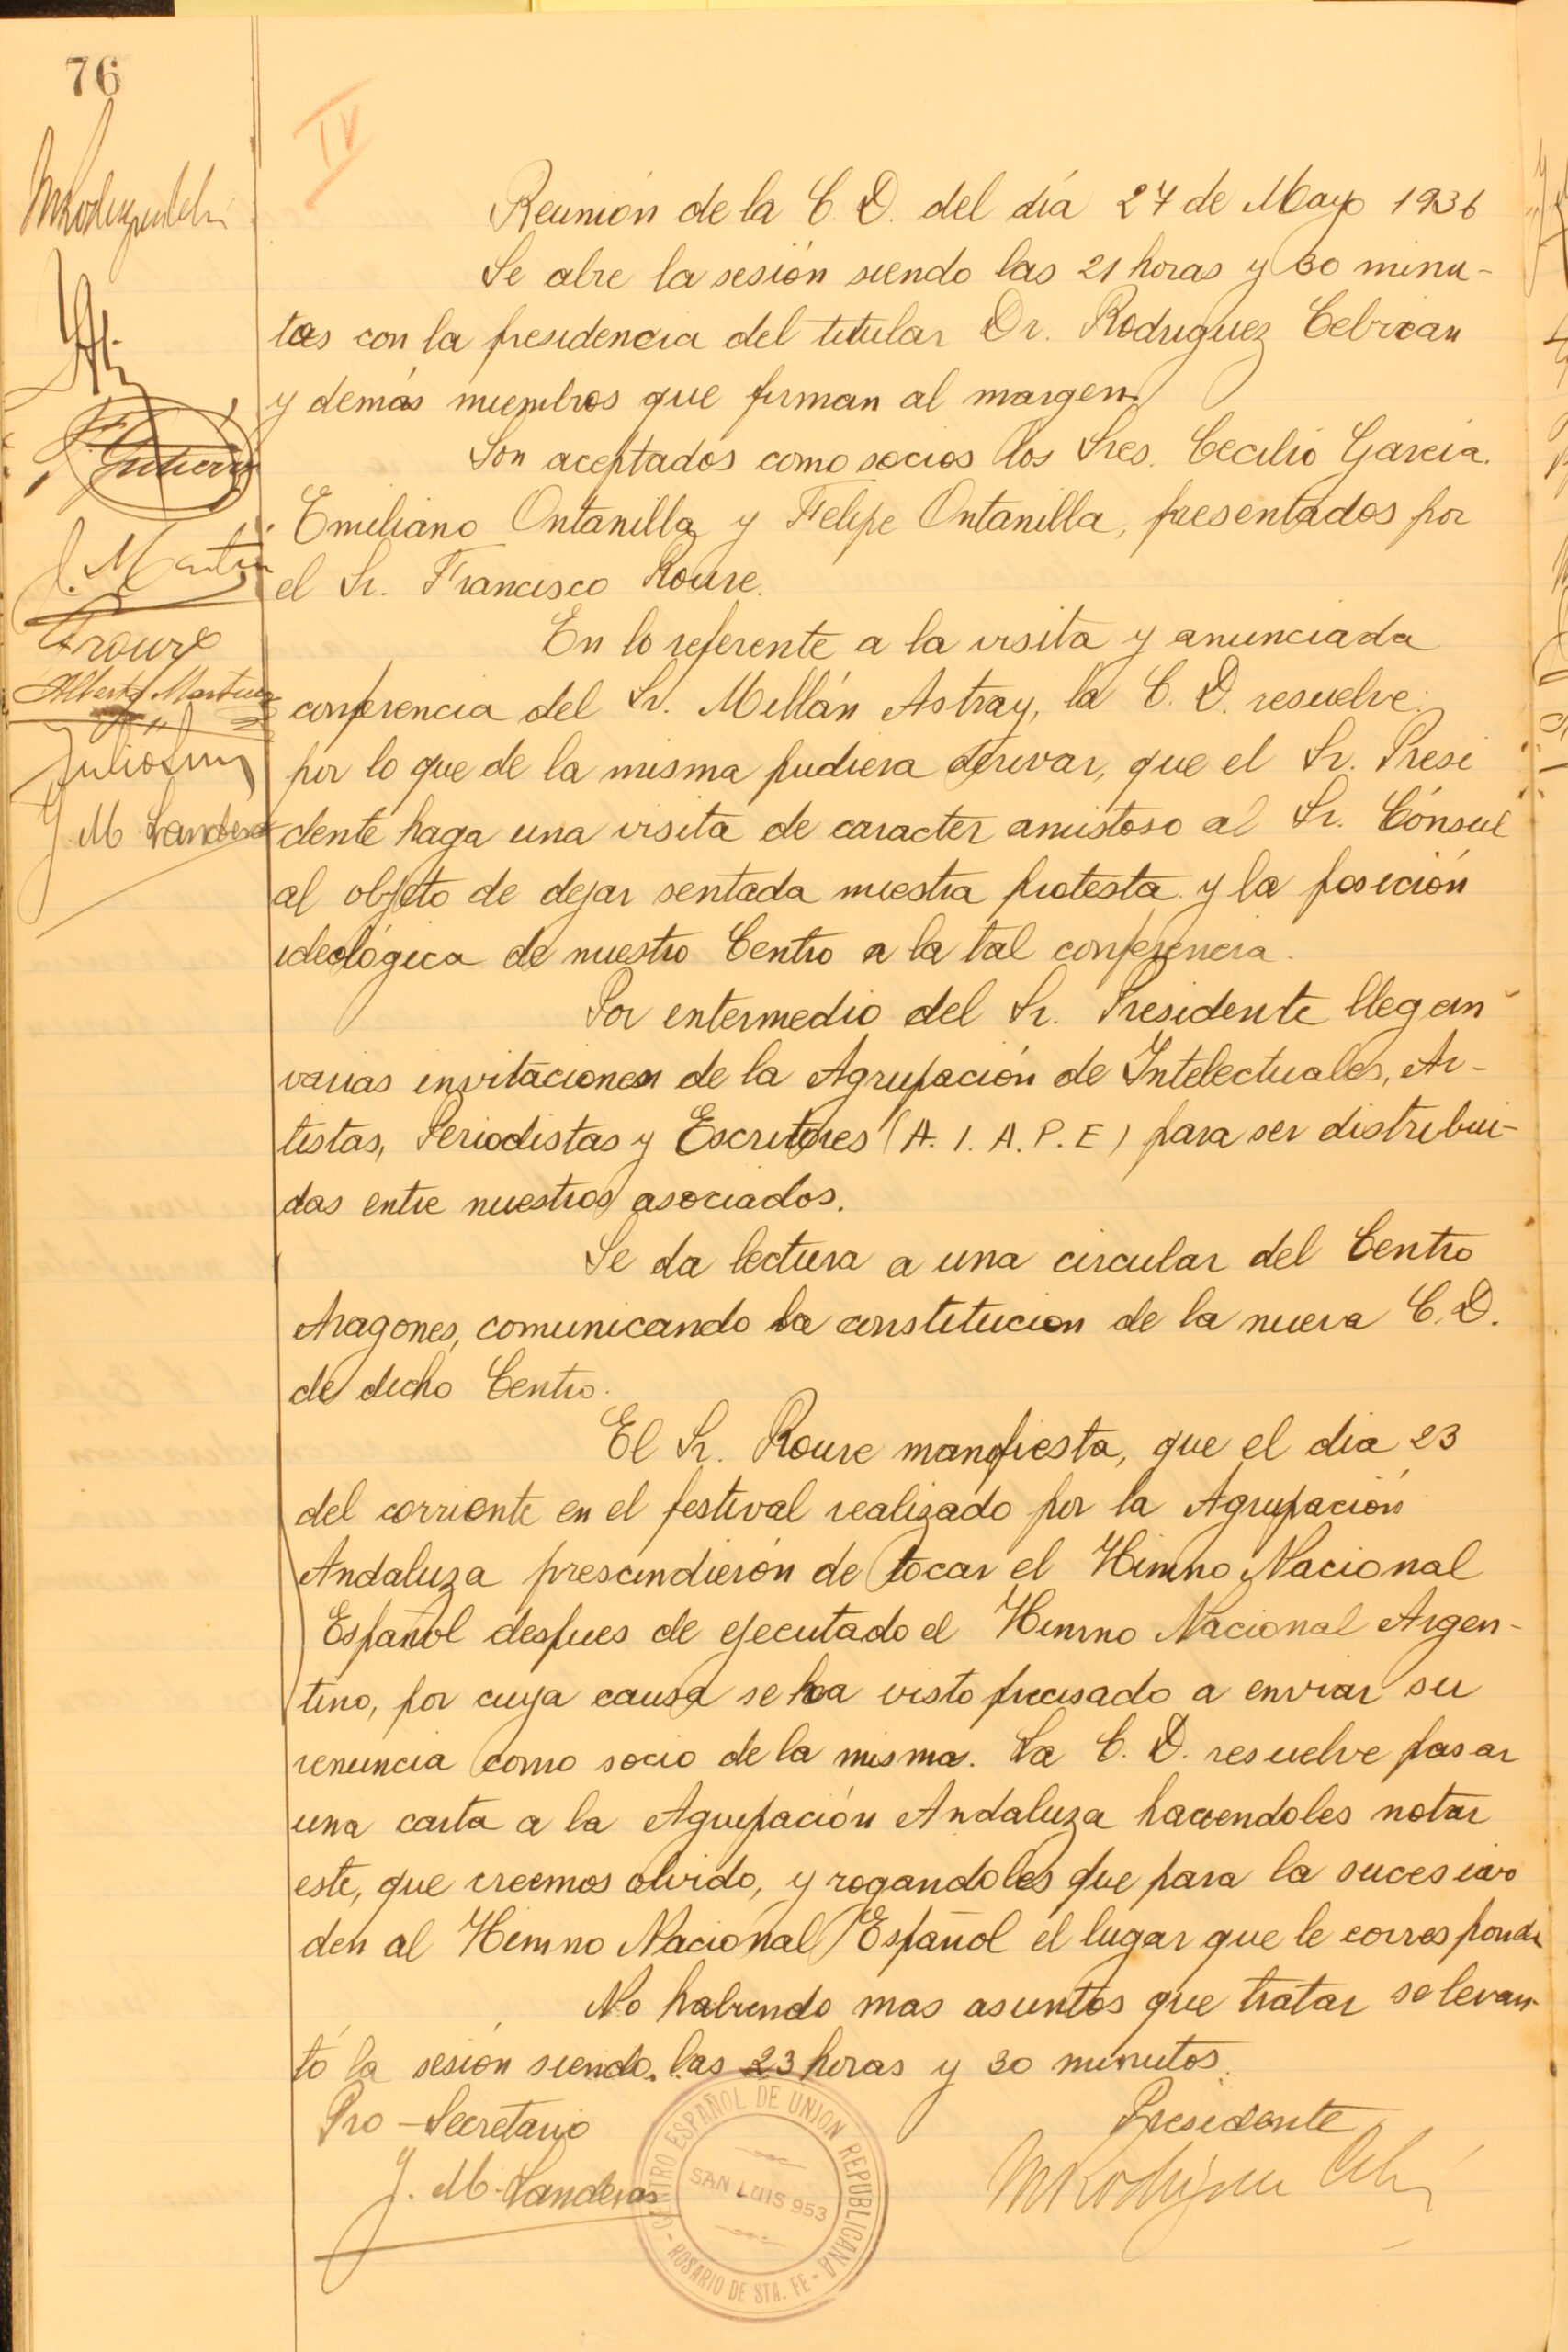 76
IV
Reunión de la C. D. del día 27 de Mayo 1936
Se abre la sesión siendo las 21 horas y 30 minu-
tos con la presidencia del titular Dr. Rodriguez Cebrian
y demás miembros que firman al margen.
Son aceptados como socios los Sres. Cecilio Garcia.
Emiliano Ontanilla y Felipe Ontanilla, presentados por
el Sr. Francisco Roure.
En lo referente a la visita y anunciada
conferencia del Sr. Millán Astray, la C. D. resuelve:
por lo que de la misma pudiera derivar, que el Sr. Presi
dente haga una visita de caracter amistoso al Sr. Cónsul
al objeto de dejar sentada nuestra protesta y la posición
ideológica de nuestro Centro a la tal conferencia.
Por entermedio del Sr. Presidente llegan
varias invitaciones de la Agrupación de Intelectuales, Ar-
tistas, Periodistas y Escritores (A. I. A. P. E) para ser distribui-
das entre nuestros asociados.
Se da lectura a una circular del Centro
Aragones, comunicando la constitucion de la nueva C. D.
de dicho Centro.
El Sr. Roure manifiesta, que el dia 23
del corriente en el festival realizado por la Agrupación
Andaluza prescindierón de tocar el Himno Nacional
Español despues de ejecutado el Himno Nacional Argen-
tino, por cuya causa se ha visto precisado a enviar su
renuncia como socio de la misma. La C. D. resuelve pasar
una carta a la Agrupación Andaluza haciendoles notar
este, que creemos olvido, y rogandoles que para la sucesivo
den al Himno Nacional Español el lugar que le corresponde
No habiendo mas asuntos que tratar se levan-
tó la sesión siendo las 23 horas y 30 minutos.
Pro-Secretario
Presidente
J. M. Landeras
M Rodriguez Ceb
CENTRO ESPAÑOL DE UNION REPUBLICANA
SAN LUIS 953
- ROSARIO DE STA. FE -
F. Gutierrez
J. Martin
F Roure
Alberto Martinez
Julio
J M Landeras